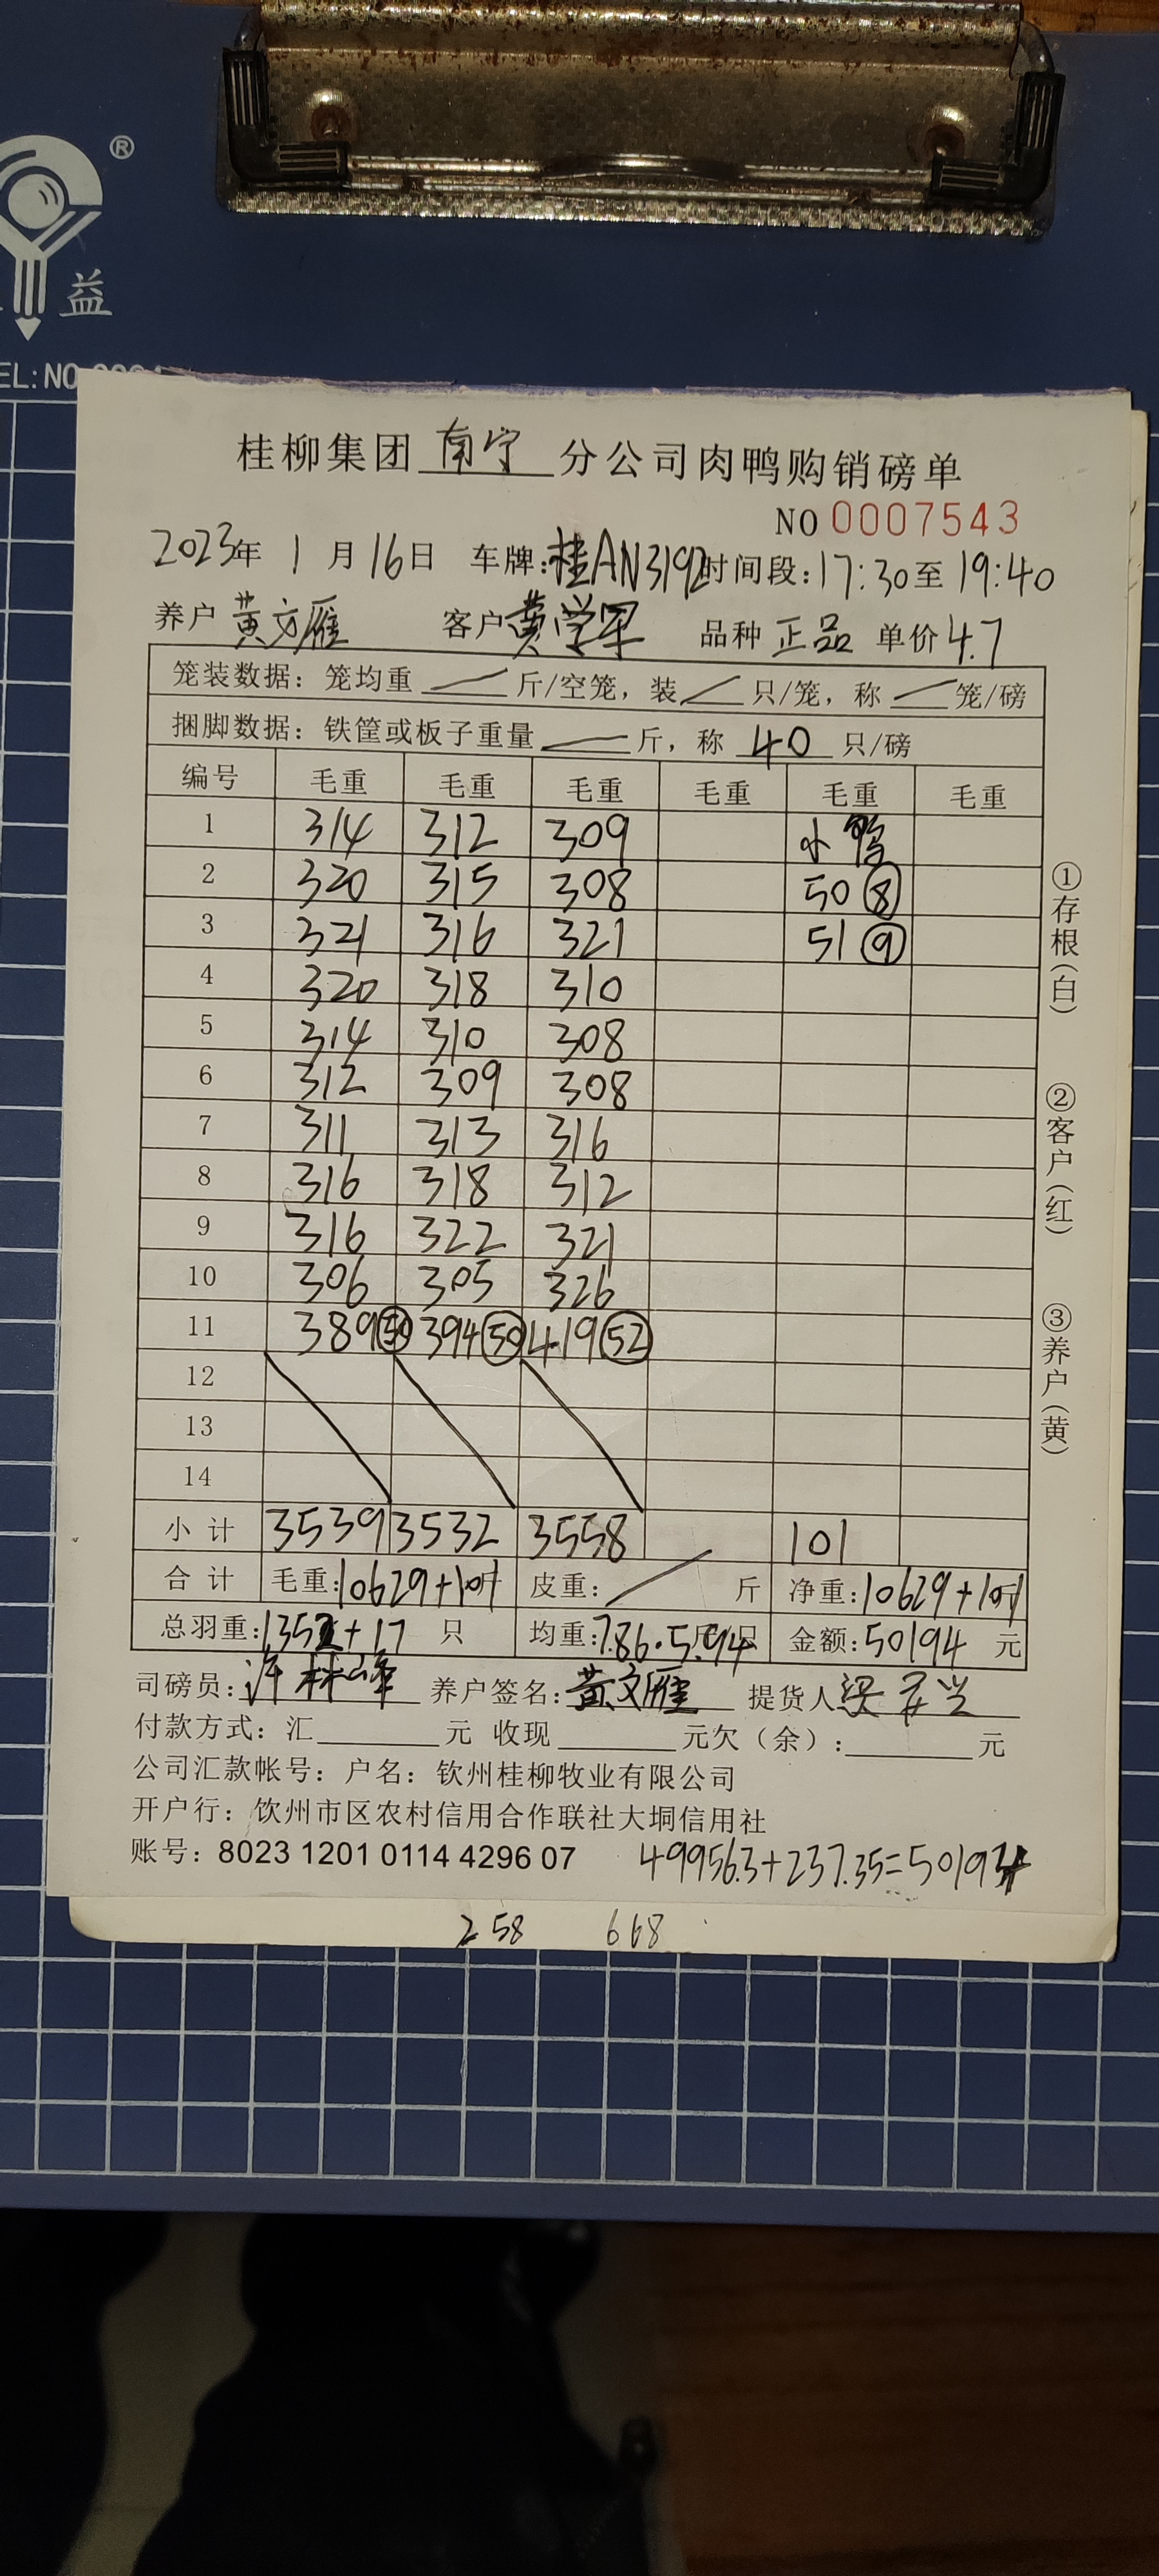 ®
益
EL:NO
桂柳集团 南宁 分公司肉鸭购销磅单
NO 0007543
2023年 1 月 16日 车牌:桂AN3192 时间段:17:30至 19:40
养户 黄文雁 客户 黄学军 品种 正品 单价 4.7
笼装数据: 笼均重 斤/空笼, 装 只/笼, 称 笼/磅
捆脚数据: 铁筐或板子重量 斤, 称 40 只/磅
编号 毛重 毛重 毛重 毛重 毛重 毛重
1 314 312 309 小鸭
2 320 315 308 50 ⑧
3 321 316 321 51 ⑨
4 320 318 310
5 314 310 308
6 312 309 308
7 311 313 316
8 316 318 312
9 316 322 321
10 306 305 326
11 389 ㊿ 394 ㊿ 419 (52)
12
13
14
小 计 3539 3532 3558 101
合 计 毛重:10629+101斤 皮重: 斤 净重:10629+101斤
总羽重:1352+17 只 均重:7.86·5.94 金额:50194 元
司磅员:许林峰 养户签名:黄文雁 提货人
付款方式: 汇 元 收现 元欠(余): 元
公司汇款帐号: 户名: 钦州桂柳牧业有限公司
开户行: 饮州市区农村信用合作联社大垌信用社
账号: 8023 1201 0114 4296 07 499563+237.35=50194
①存根(白)
②客户(红)
③养户(黄)
258 668